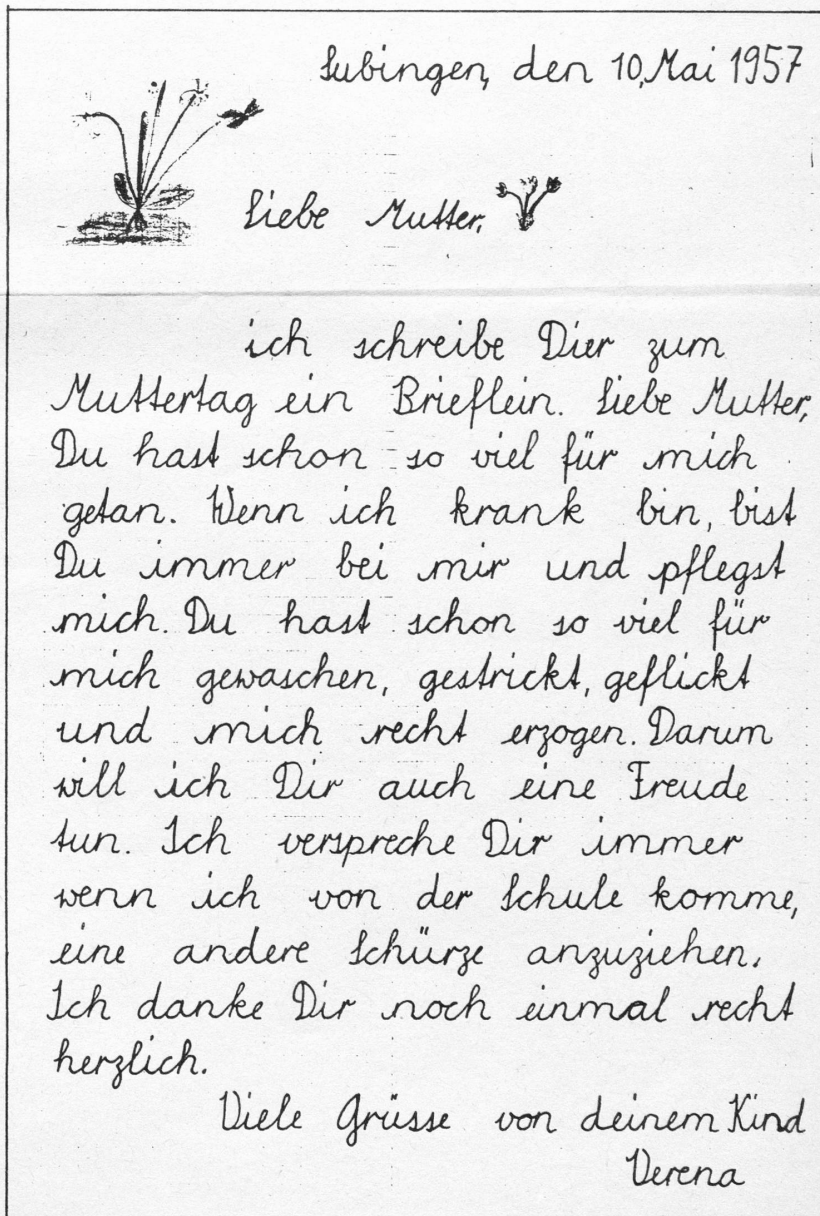 Subingen, den 10. Mai 1957
Liebe Mutter,
ich schreibe Dier zum
Muttertag ein Brieflein. Liebe Mutter,
Du hast schon so viel für mich
getan. Wenn ich krank bin, bist
Du immer bei mir und pflegst
mich. Du hast schon so viel für
mich gewaschen, gestrickt, geflickt
und mich recht erzogen. Darum
will ich Dir auch eine Freude
tun. Ich verspreche Dir immer
wenn ich von der Schule komme,
eine andere Schürze anzuziehen.
Ich danke Dir noch einmal recht
herzlich.
Viele Grüsse von deinem Kind
Verena